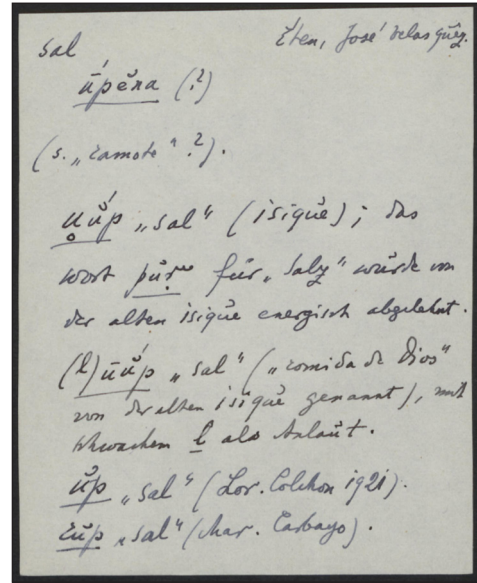 sal
Eten, José Velasquez.
ū́pĕna (?)
(s. „camote“ ?).
u̥ŭ́p „sal“ (isiqŭe); das
wort pŭr̃ für „Salz“ wurde von
der alten isiqŭe energisch abgelehnt.
(l)ūŭ́p „sal“ („comida de Dios“
von der alten isiqŭe genannt), mit
schwachem l als Anlaŭt.
ŭ́p „sal“ (Lor. Colchon 1921).
čŭp „sal“ (Mar. Carbayo).